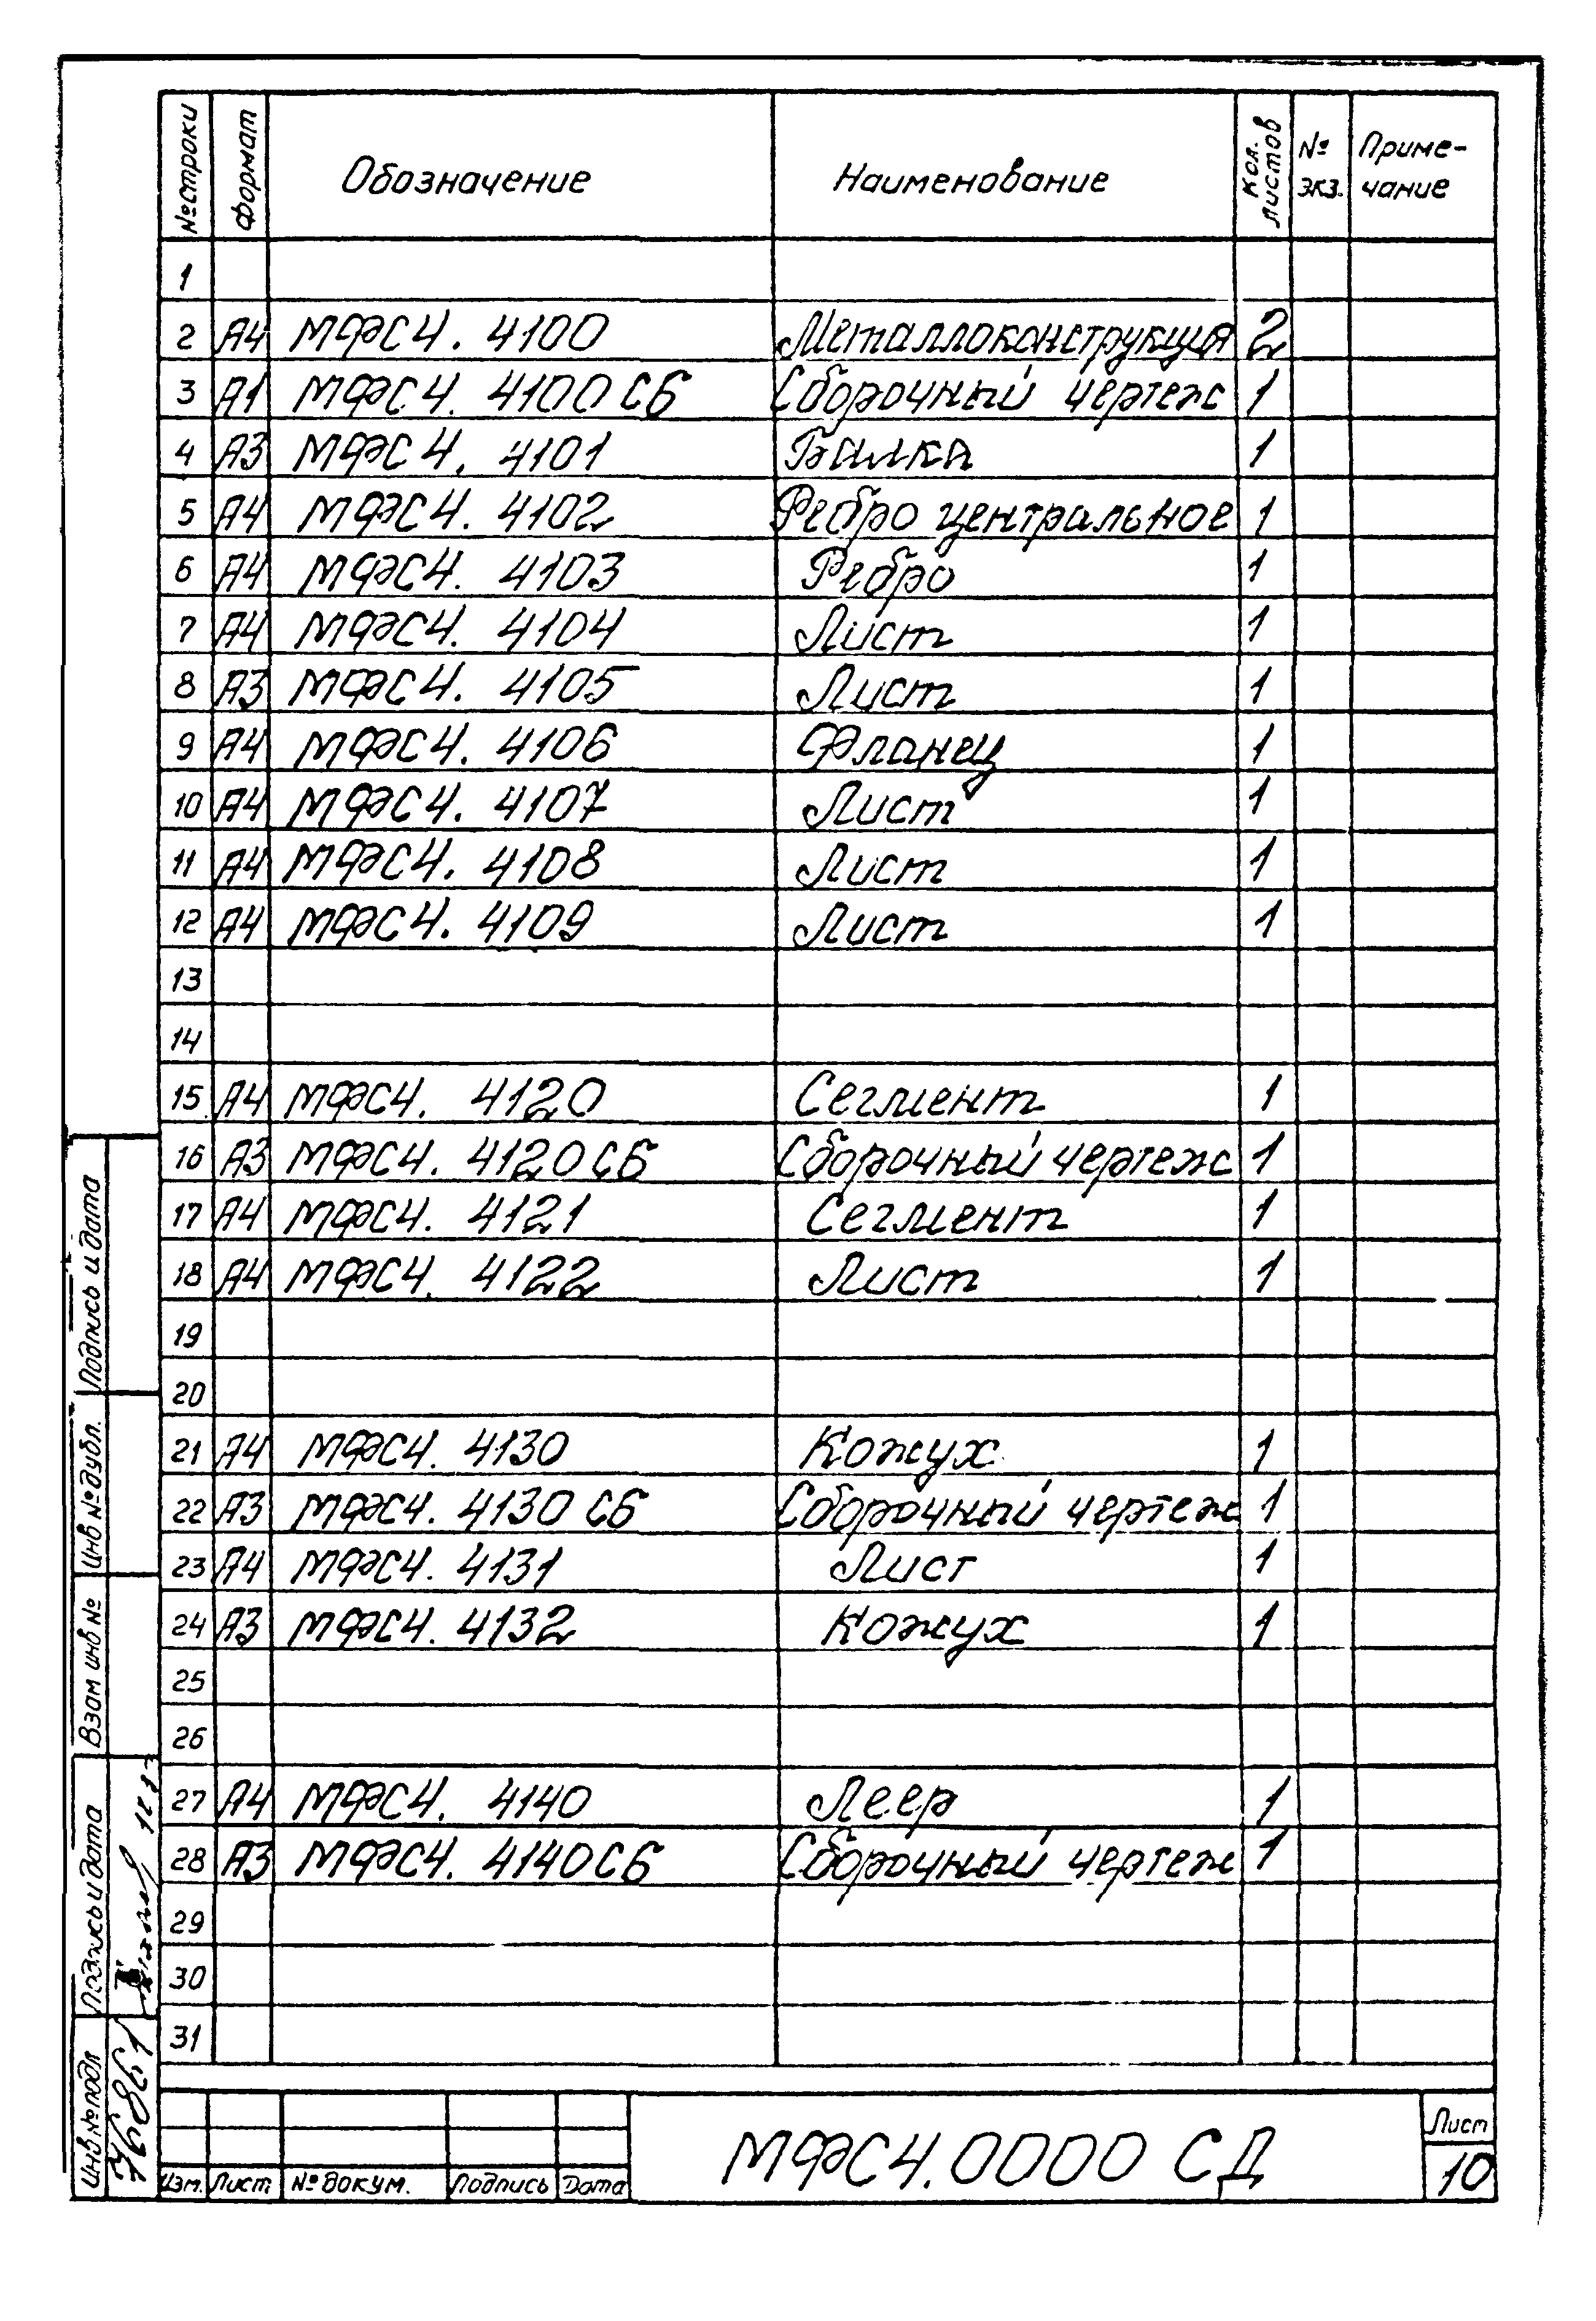 № строки Формат Обозначение Наименование Кол. листов № экз. Приме-чание
1
2 А4 МФЭС4. 4100 Металлоконструкция 2
3 А1 МФЭС4. 4100 СБ Сборочный чертеж 1
4 А3 МФЭС4. 4101 Балка 1
5 А4 МФЭС4. 4102 Ребро центральное 1
6 А4 МФЭС4. 4103 Ребро 1
7 А4 МФЭС4. 4104 Лист 1
8 А3 МФЭС4. 4105 Лист 1
9 А4 МФЭС4. 4106 Фланец 1
10 А4 МФЭС4. 4107 Лист 1
11 А4 МФЭС4. 4108 Лист 1
12 А4 МФЭС4. 4109 Лист 1
13
14
15 А4 МФЭС4. 4120 Сегмент 1
16 А3 МФЭС4. 4120 СБ Сборочный чертеж 1
17 А4 МФЭС4. 4121 Сегмент 1
18 А4 МФЭС4. 4122 Лист 1
19
20
21 А4 МФЭС4. 4130 Кожух 1
22 А3 МФЭС4. 4130 СБ Сборочный чертеж 1
23 А4 МФЭС4. 4131 Лист 1
24 А3 МФЭС4. 4132 Кожух 1
25
26
27 А4 МФЭС4. 4140 Леер 1
28 А3 МФЭС4. 4140 СБ Сборочный чертеж 1
29
30
31
Подпись и дата
Инв № дубл.
Взам инв №
Подпись и дата
Инв № подл
Изм. Лист № докум. Подпись Дата
МФЭС4.0000 СД
Лист
10